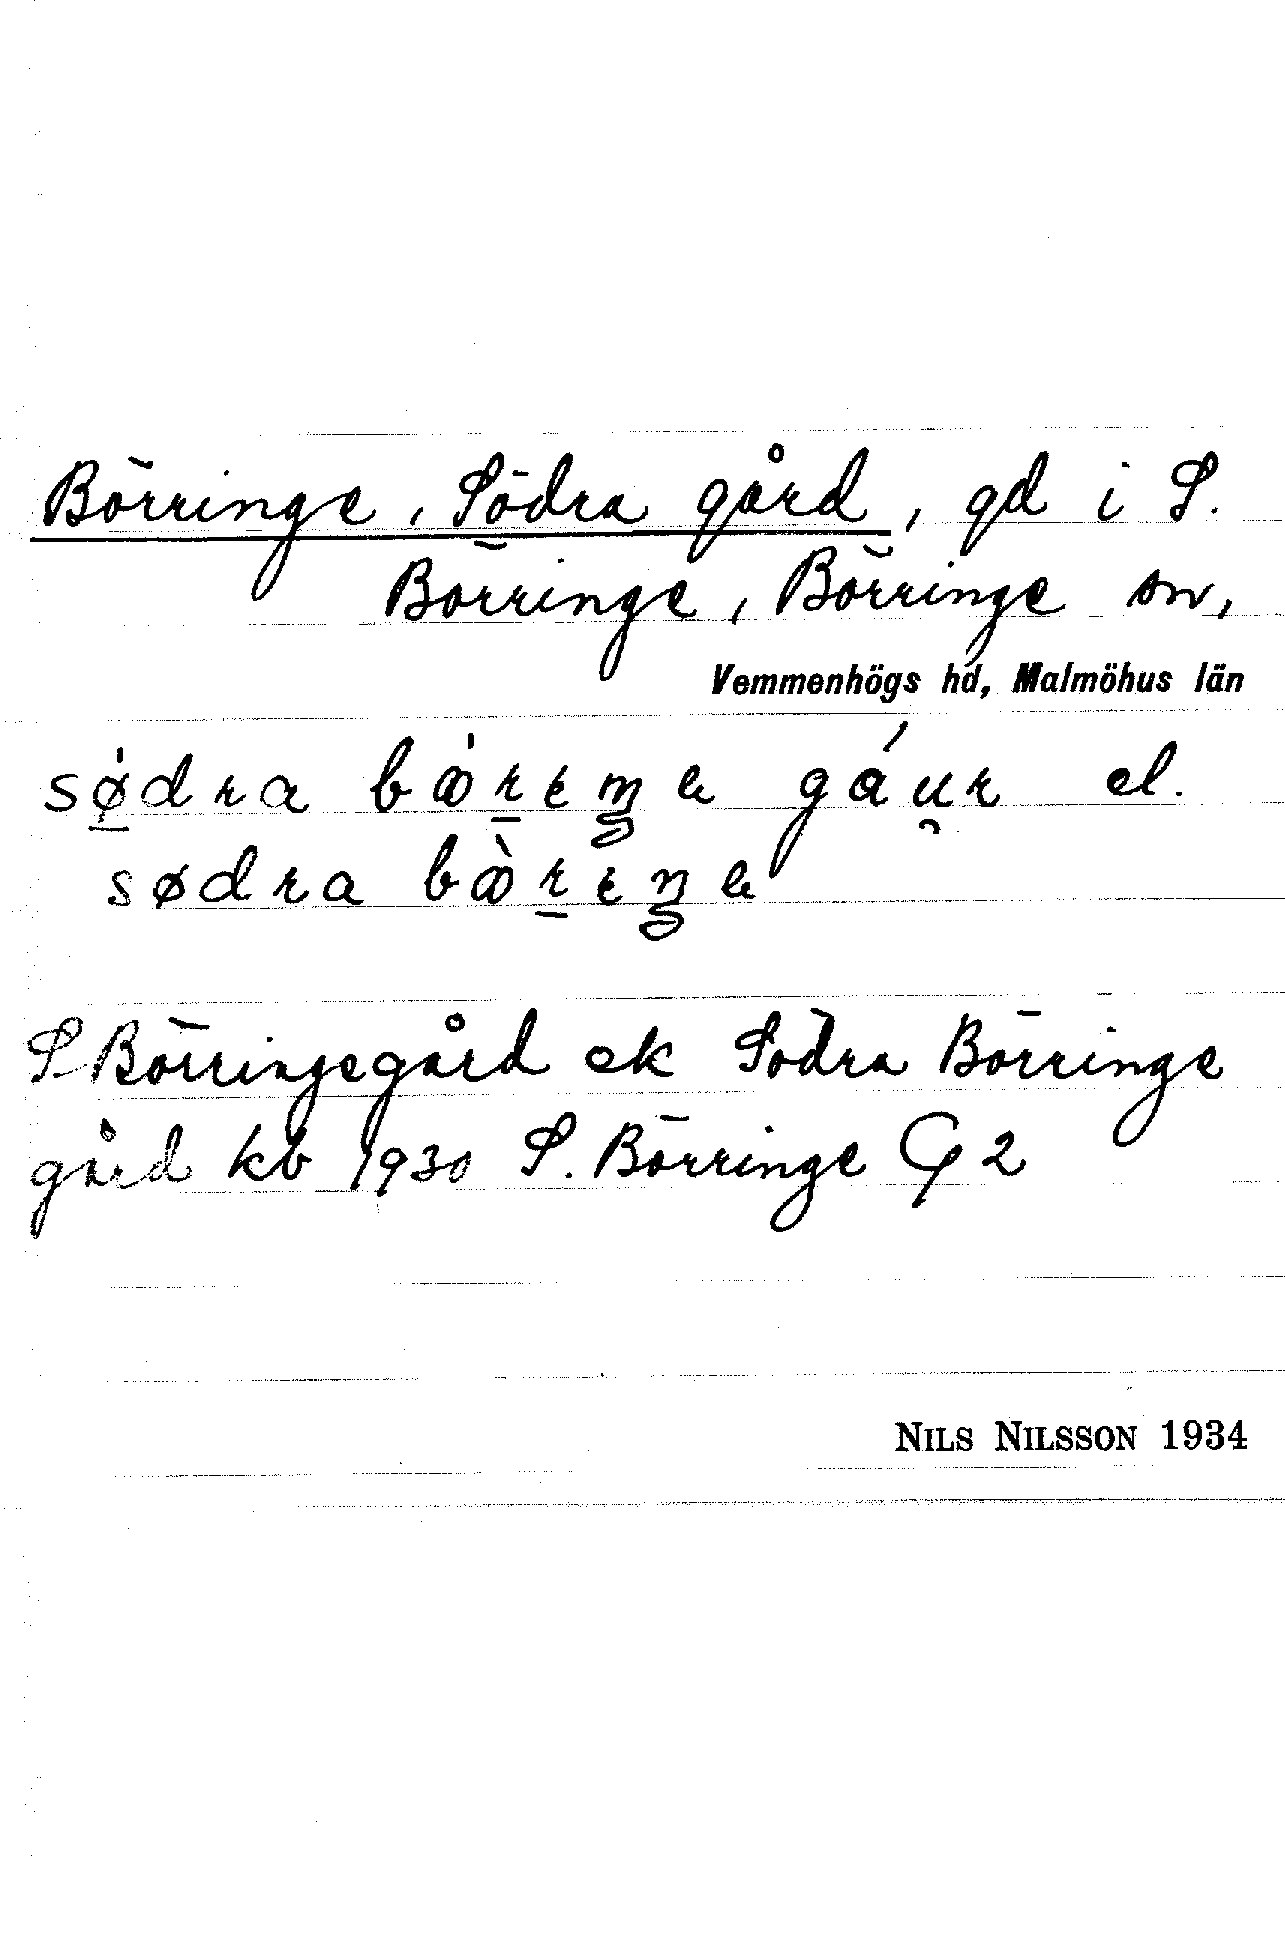 Börringe, Södra gård, gd i S.
Börringe, Börringe sn,
Vemmenhögs hd, Malmöhus län
sødra bœrɩŋa gáu̯r el.
sødra bœ̀rɩŋa
S Börringegård ek Södra Börringe
gård kb 1930 S. Börringe G 2
NILS NILSSON 1934